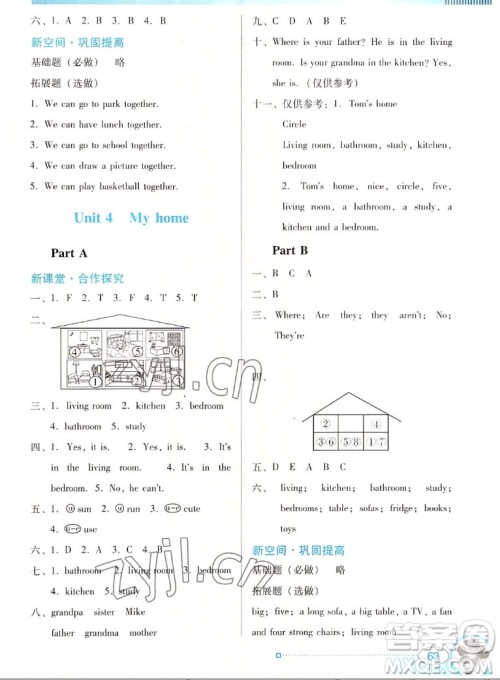 六、1. A  2. B  3. B  4. A
新空间·巩固提高
基础题（必做）  略
拓展题（选做）
1. We can go to park together.
2. We can have lunch together.
3. We can go to school together.
4. We can draw a picture together.
5. We can play basketball together.
Unit 4  My home
Part A
新课堂·合作探究
一、1. F  2. T  3. F  4. T  5. T
二、
④ ⑤ ⑥
① ③ ②
三、1. living room  2. kitchen  3. bedroom
4. bathroom  5. study
四、1. Yes, it is.  2. Yes, it is.  3. It's
in the living room.  4. It's in the
bedroom.  5. No, he can't.
五、1. ⓤ sun  2. ⓤ run  3. u-e cute
4. u-e use
六、1. D  2. A  3. C  4. B
七、1. bathroom  2. living room  3. bedroom
4. kitchen  5. study
八、grandpa  sister  Mike
father  grandma  mother
九、C  D  A  B  E
十、Where is your father? He is in the living
room. Is your grandma in the kitchen? Yes,
she is.（仅供参考）
十一、仅供参考：1. Tom's home
Circle
Living room, bathroom, study, kitchen,
bedroom
2. Tom's home, nice, circle, five,
living room, a bathroom, a study, a
kitchen and a bedroom.
Part B
一、B  C  A
二、B
三、Where; Are; they; they; aren't; No;
They're
四、
② ④
③⑥ ⑤⑧ ①⑦
五、D  E  A  B  C
六、living; kitchen; bathroom; study;
bedrooms; table; sofas; fridge; books;
toys
新空间·巩固提高
基础题（必做）  略
拓展题（选做）
big; five; a long sofa, a big table, a TV, a fan
and four strong chairs; living room
63
zyjl.cn
zyjl.cn
答案圈
MXQE.COM